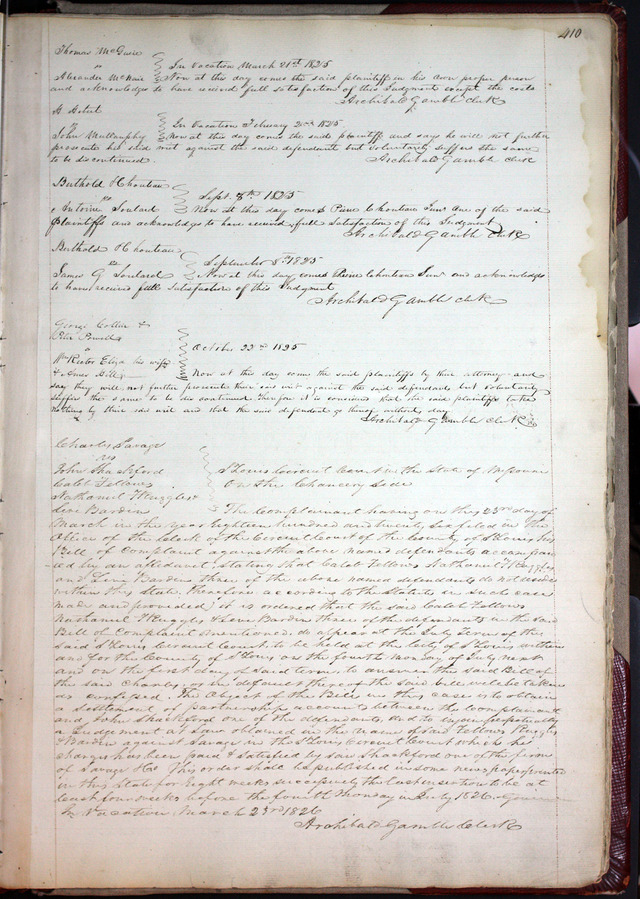 410
Thomas McGuire
vs
In Vacation March 21st 1825
Alexander McNair Now at this day comes the said plaintiff in his own proper person
and acknowledges to have received full satisfaction of this Judgment except the costs
Archibald Gamble Clerk
vs
In Vacation February 2nd 1825
John Mullanphy Now at this day comes the said plaintiff and says he will not further
prosecute his said writ against the said defendant but voluntarily suffers the same
to be discontinued
Archibald Gamble Clerk
Berthold & Chouteau
vs
Sept. 8th 1825
Antoine Soulard Now at this day comes Pierre Chouteau Junr. One of the said
plaintiffs and acknowledges to have received full satisfaction of this Judgment
Archibald Gamble Clerk
Berthold & Chouteau
vs
September 5th 1825
James G Soulard Now at this day comes Pierre Chouteau Junr and acknowledges
to have received full satisfaction of this Judgment
Archibald Gamble Clerk
George Collier &
Peter Powell
vs
October 22nd 1825
Wm Rector Eliza his wife
& Now at this day come the said plaintiffs by their attorney and
say they will not further prosecute their said writ against the said defendant but voluntarily
suffer the same to be discontinued therefore it is considered that the said plaintiffs take
nothing by their said writ and that the said defendant go thereof without day
Archibald Gamble Clerk
Charles Savage
vs
John Shackford
Caleb Fellows
Nathaniel Ruggles &
Levi Barden
St Louis Circuit Court in the State of Missouri
On the Chancery Side
The Complainant having on this 23rd day of
March in the year Eighteen hundred and twenty Six filed in the
Office of the Clerk of the Circuit Court of the County of St Louis his
Bill of Complaint against the above named defendants accompan
ied by an affidavit stating that Caleb Fellows Nathaniel Ruggles
and Levi Barden three of the above named defendants do not reside
within this State, therefore, according to the Statute in such case
made and provided, it is ordered that the said Caleb Fellows
Nathaniel Ruggles & Levi Barden three of the defendants in the said
Bill of Complaint mentioned, do appear at the July Term of the
said St Louis Circuit Court, to be held at the City of St Louis within
and for the County of St Louis on the fourth Monday of July next
and on the first day of said term, to answer the said Bill of
the said Charles, or in default thereof the said bill will be taken
as confessed. The Object of the Bill in this case is to obtain
a settlement of partnership accounts between the Complainant
and John Shackford one of the defendants, and to injoin perpetually
a Judgement at Law obtained in the name of said Fellows Ruggles
& Barden against Savage in the St Louis Circuit Court which he
charges has been paid & satisfied by said Shackford one of the firm
of Savage & Co This order shall be published in some newspaper printed
in this State for Eight weeks successively the last insertion to be at
least four weeks before the fourth Monday in July 1826.
In Vacation, March 23rd 1826
Archibald Gamble Clerk